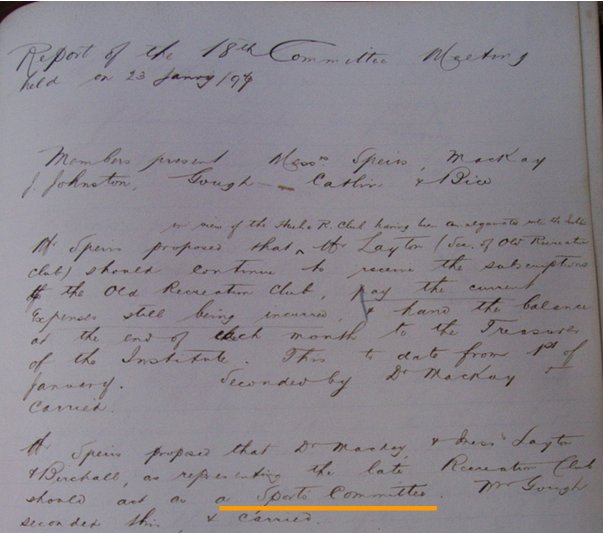 Report of the 18th Committee Meeting
held on 23 Janry /97
Members present Messrs Speirs, Mackay
J. Johnston, Gough — Catlin & Bice
in view of the R. Club having been amalgamated into the
Mr Speirs proposed that Mr Layton (Sec. of Old Recreation
Club) should continue to receive the subscriptions
of the Old Recreation Club, pay the current
Expenses still being incurred, & hand the balance
at the end of each month to the Treasurer
of the Institute. This to date from 1st of
January. Seconded by Dr Mackay &
Carried.
Mr Speirs proposed that Dr Mackay, & Messrs Layton
& Berchall, as representing the late Recreation Club
should act as a Sports Committee. Mr Gough
seconded this & carried.